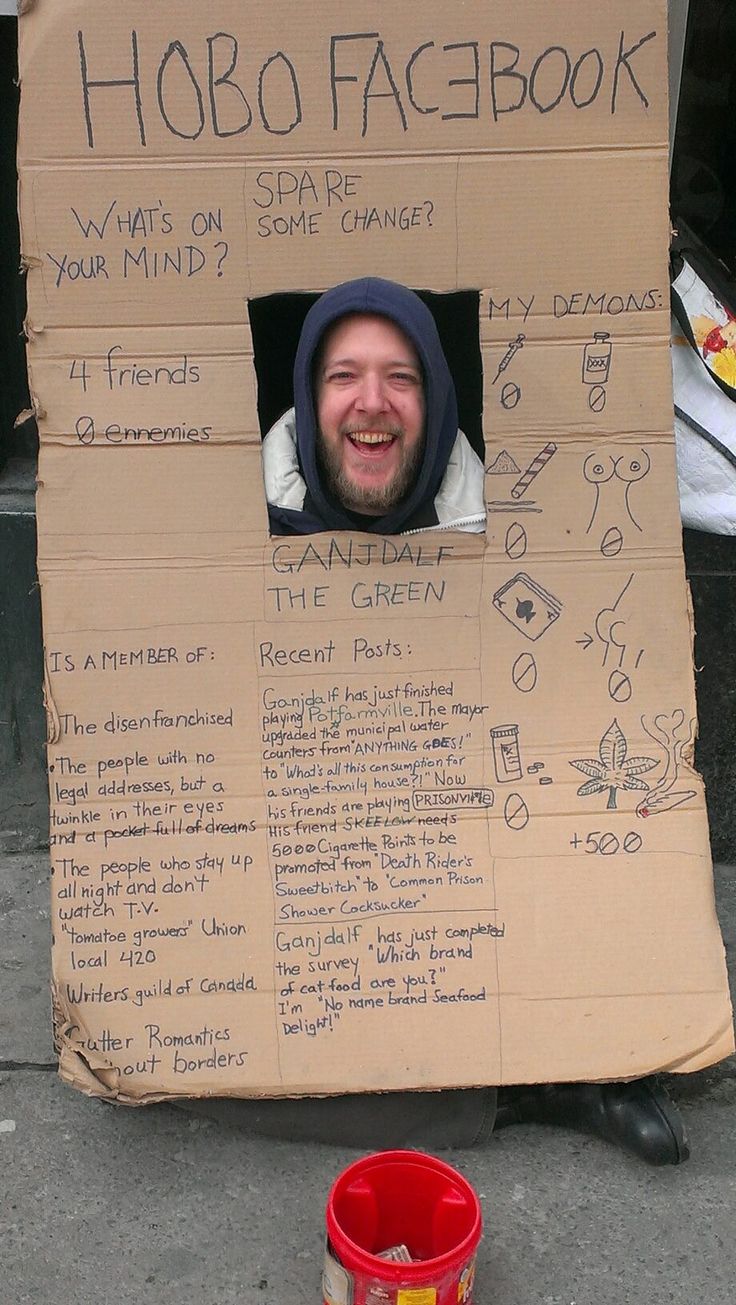 HOBO FACEBOOK
WHAT'S ON
YOUR MIND?
SPARE
SOME CHANGE?
4 friends
0 ennemies
MY DEMONS:
XXX
0
0
0
0
0
0
0
+500
GANJDALF
THE GREEN
IS A MEMBER OF:
The disenfranchised
•The people with no
legal addresses, but a
twinkle in their eyes
and a pocket full of dreams
•The people who stay up
all night and don't
watch T.V.
"tomatoe growers" Union
local 420
Writers guild of Canada
Gutter Romantics
borders
Recent Posts:
Ganjdalf has just finished
playing Potfarmville. The mayor
upgraded the municipal water
counters from "ANYTHING GOES!"
to "What's all this consumption for
a single-family house?!" Now
his friends are playing PRISONVILLE
His friend SKEELOW needs
5000 Cigarette Points to be
promoted from "Death Rider's
Sweetbitch" to "Common Prison
Shower Cocksucker"
Ganjdalf has just completed
the survey "Which brand
of cat food are you?"
I'm "No name brand Seafood
Delight!"